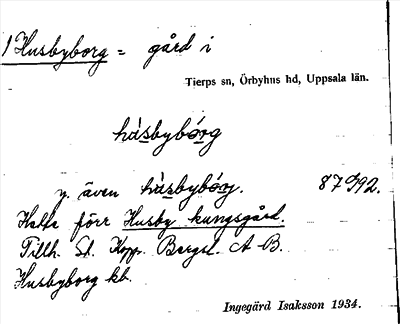 1 Husbyborg = gård i
Tierps sn, Örbyhus hd, Uppsala län.
hùsbybórg
y. även hùsbybórj. 87 0/92.
Hette förr Husby kungsgård.
Tillh. St. Kopp. Bergsl. A B.
Husbyborg kb.
Ingegärd Isaksson 1934.